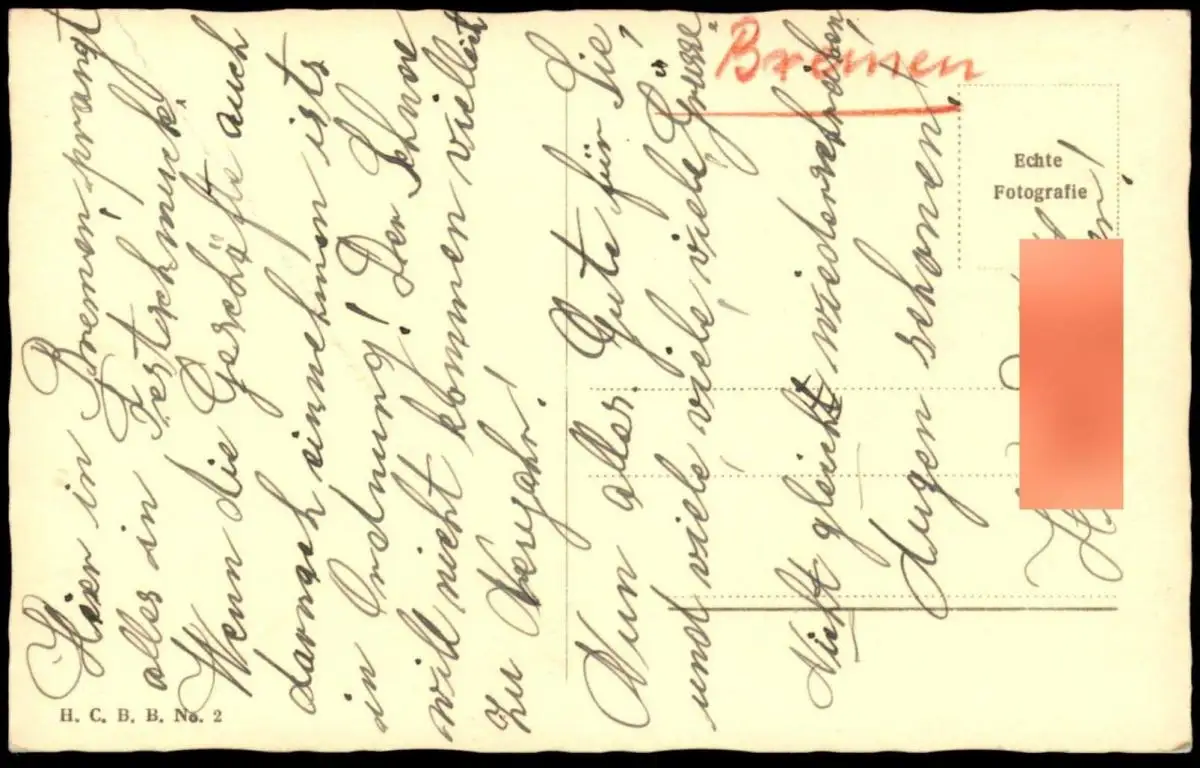 Bremen
Echte
Fotografie
Hier in Bremen prangt
alles in Festschmuck.
Wenn die Geschäfte auch
darnach einnehmen ists
in Ordnung! Der Schnee
will nicht kommen vielleicht
zu Neujahr!
Nun alles Gute für Sie,
und viele viele, viele viele Grüsse,
Nicht gleich wiederschreiben,
Augen schonen!
H. C. B. B. No. 2